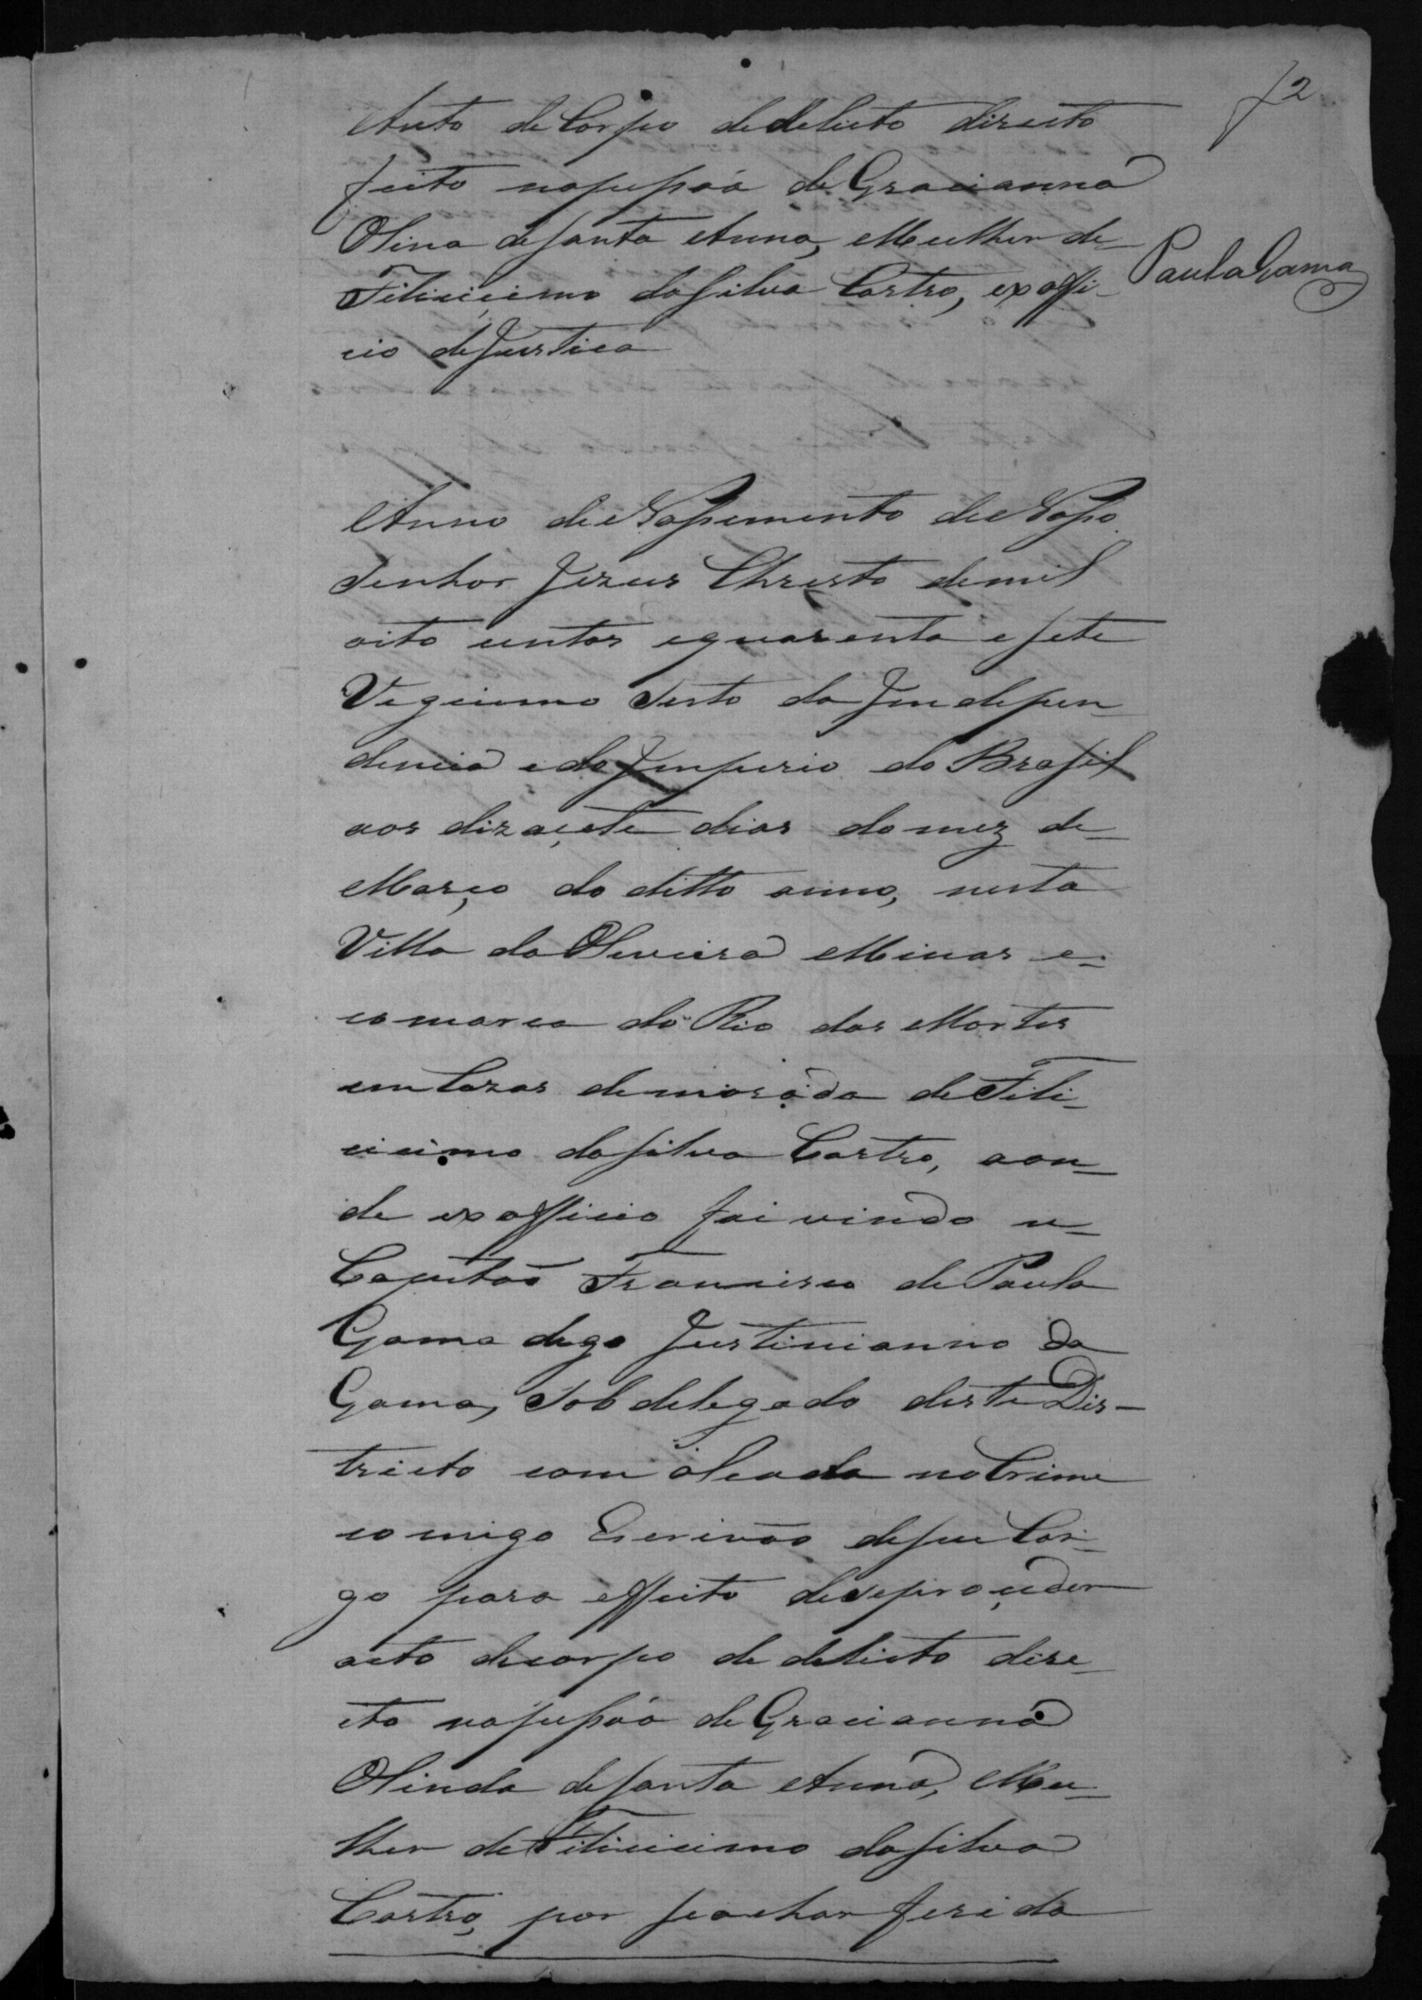 f 2
Auto de Corpo de delicto directo
feito napessôa de Gracianna
Olina deSanta Anna, Mulher de
Filicicimo daSilva Castro, exoffi-
cio deJustica
PaulaGama
Anno do Nassimento de Nosso
Senhor Jezus Christo demil
oito centos equarenta esete
Vegecimo Sesto da Indepen-
dencia edo Imperio do Brasil
aos dizacete dias do mez de
Março do ditto anno, nesta
Villa da Oliveira Minas e
comarca do Rio das Mortes
em Cazas demorada de Fili-
cicimo daSilva Castro, aon-
de exofficio foi vindo o
Capitão Francisco de Paula
Gama digo Justinianno da
Gama, Sobdelegado deste Dis-
tricto com alçada noCrime
comigo Escrivão deseu Car-
go para effeito deseproceder
acto decorpo de delicto dire-
cto napessôa de Gracianna
Olinda deSanta Anna, Mu-
lher de Filicicimo daSilva
Castro, por seachar ferida